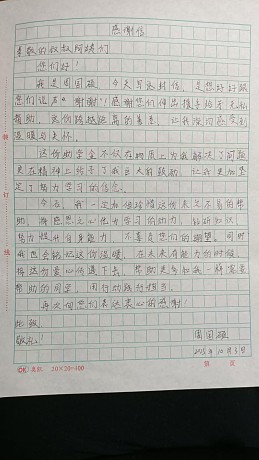 感谢信
尊敬的叔叔阿姨们
您们好！
我是周国硕，今天写这封信，是想好好跟
您们说声“谢谢”！感谢您们伸出援手给予无私
帮助，这份跨越距离的善意，让我深切感受到
温暖与关怀。
这份助学金不仅在物质上为我解决了问题
更在精神上给予了我巨大的鼓励，让我更加坚
定了努力学习的信念。
今后，我一定加倍珍惜这份来之不易的帮
助，将感恩之心化为学习的动力，钻研知识
努力提升自身能力，不辜负您们的期望。同时
我也会铭记这份温暖，在未来有能力的时候，
将这份爱心传递下去，帮助更多如我一样需要
帮助的同学，用行动践行担当。
再次向您们表达衷心的感谢！
此致
敬礼！
周国硕
2025年10月3日
装
订
线
20×20=400